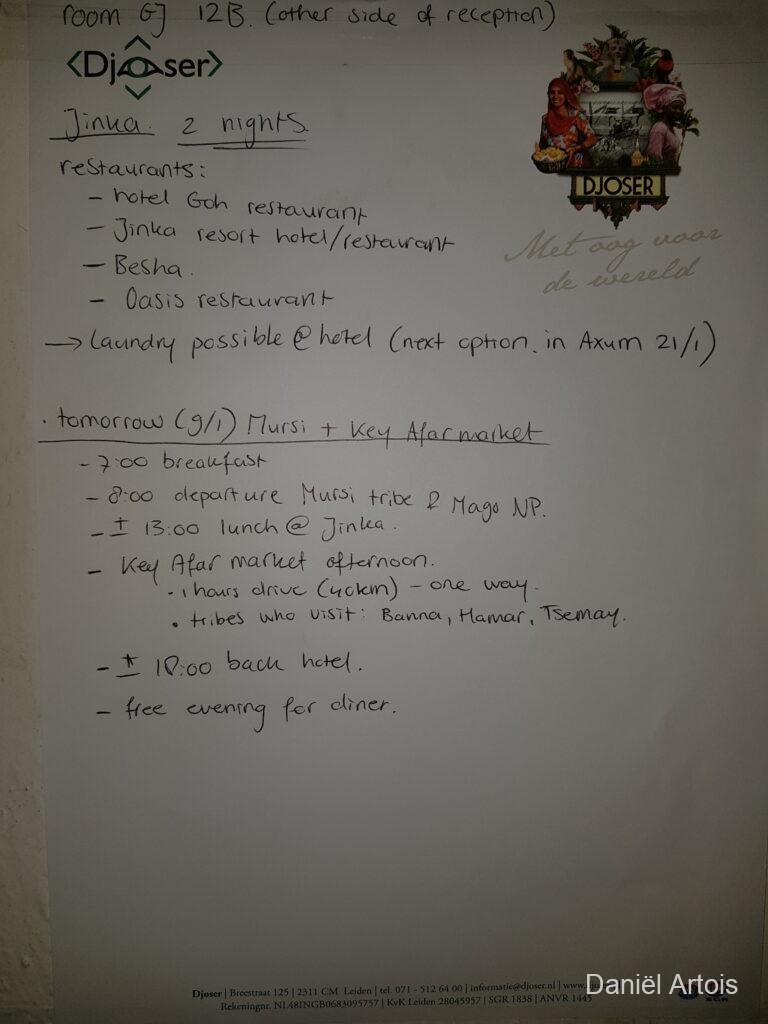 room GJ 12B. (other side of reception)
<Djoser>
DJOSER
Met oog voor
de wereld
Jinka. 2 nights.
restaurants:
- hotel Goh restaurant
- Jinka resort hotel/restaurant
- Besha.
- Oasis restaurant
→ Laundry possible @ hotel (next option. in Axum 21/1)
· tomorrow (9/1) Mursi + Key Afar market
- 7:00 breakfast
- 8:00 departure Mursi tribe & Mago NP.
- ± 13:00 lunch @ Jinka.
- Key Afar market afternoon.
· 1 hours drive (40km) - one way.
• tribes who visit: Banna, Hamar, Tsemay.
- ± 18:00 back hotel.
- free evening for diner.
Djoser | Breestraat 125 | 2311 CM Leiden | tel. 071 - 512 64 00 | informatie@djoser.nl
Rekeningnr. NL48INGB0683095757 | KvK Leiden 28045957 | SGR 1838 | ANVR 1445
Daniël Artois